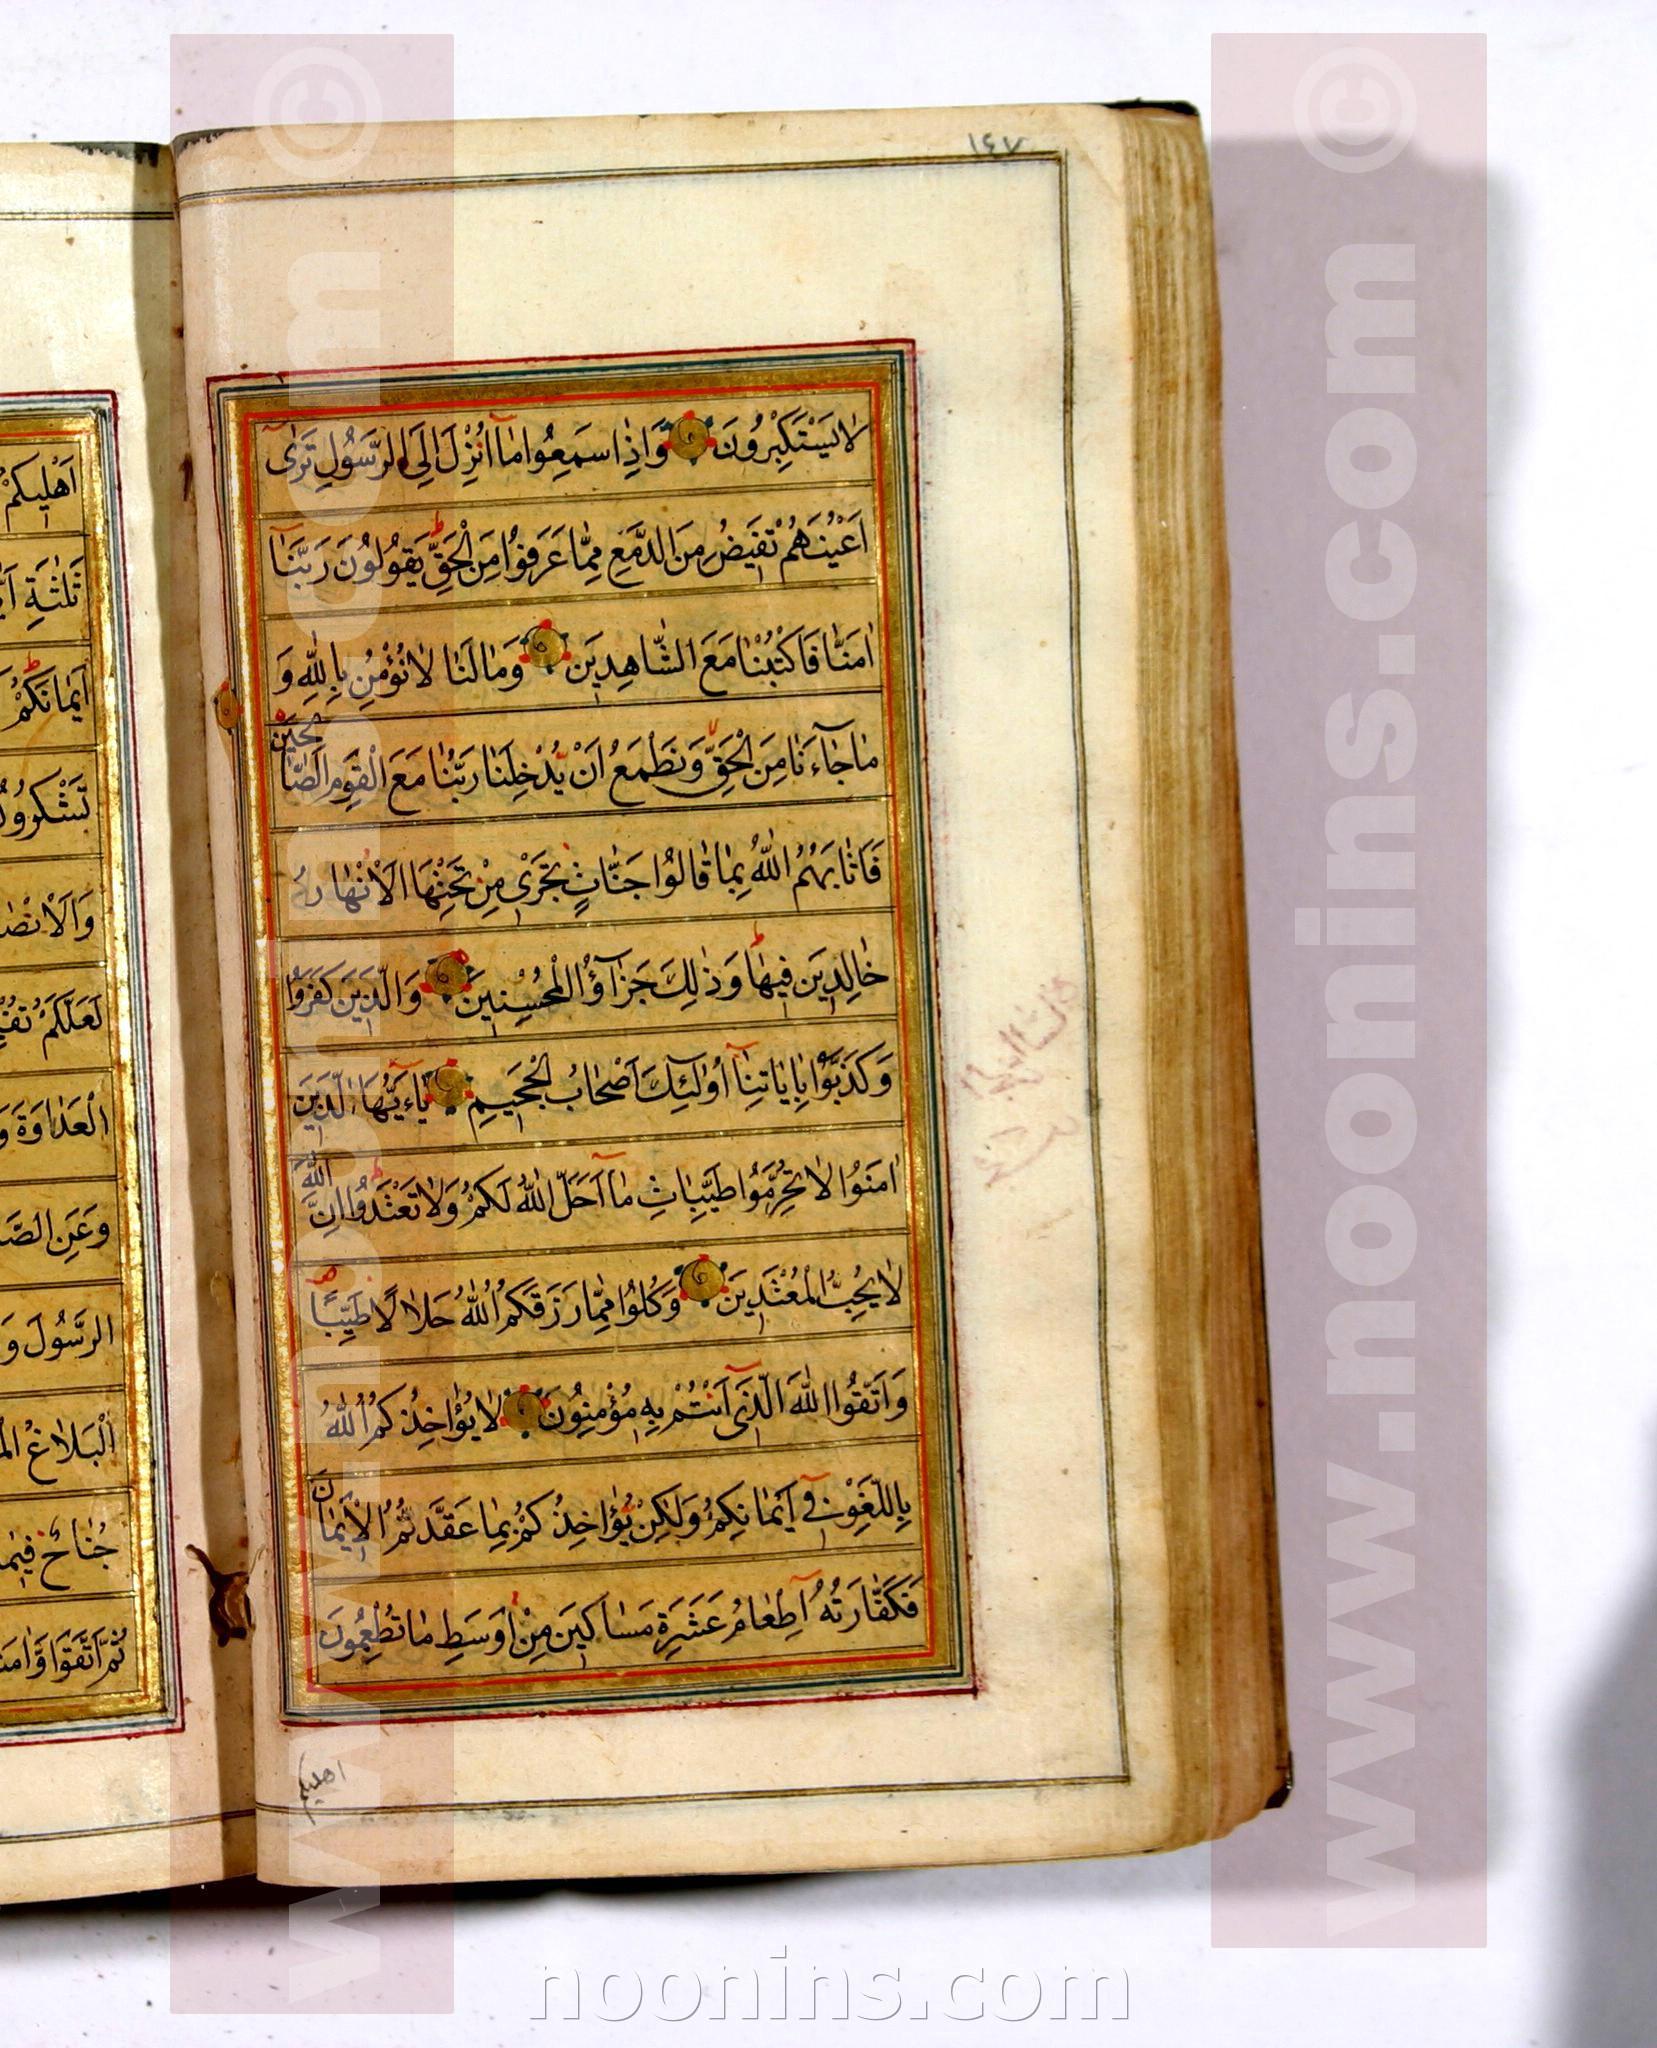 ١٤٧
لا يَسْتَكْبِرُونَ وَاِذا سَمِعُوا مٰا اُنْزِلَ اِلَى الرَّسُولِ تَرٰى
اَعْيُنَهُمْ تَفيضُ مِنَ الدَّمْعِ مِمّٰا عَرَفُوا مِنَ الْحَقِّ يَقُولُونَ رَبَّنٰا
اٰمَنّٰا فَاكْتُبْنٰا مَعَ الشّٰاهِدينَ وَمٰا لَنٰا لاٰ نُؤْمِنُ بِاللّٰهِ وَ
مٰا جٰاءَنٰا مِنَ الْحَقِّ وَنَطْمَعُ اَنْ يُدْخِلَنٰا رَبُّنٰا مَعَ الْقَوْمِ الصّٰالِحينَ
فَاَثٰابَهُمُ اللّٰهُ بِمٰا قٰالُوا جَنّٰاتٍ تَجْري مِنْ تَحْتِهَا الْاَنْهٰارُ
خٰالِدينَ فيهٰا وَذٰلِكَ جَزٰاؤُا الْمُحْسِنينَ وَالَّذينَ كَفَرُوا
وَكَذَّبُوا بِاٰيٰاتِنٰا اُولٰئِكَ اَصْحٰابُ الْجَحيمِ يٰا ءَيُّهَا الَّذينَ
اٰمَنُوا لاٰ تُحَرِّمُوا طَيِّبٰاتِ مٰا اَحَلَّ اللّٰهُ لَكُمْ وَلاٰ تَعْتَدُوا اِنَّ اللّٰهَ
لاٰ يُحِبُّ الْمُعْتَدينَ وَكُلُوا مِمّٰا رَزَقَكُمُ اللّٰهُ حَلاٰلًا طَيِّبًا
وَاتَّقُوا اللّٰهَ الَّذي اَنْتُمْ بِهِ مُؤْمِنُونَ لاٰ يُؤٰاخِذُكُمُ اللّٰهُ
بِاللَّغْوِ في اَيْمٰانِكُمْ وَلٰكِنْ يُؤٰاخِذُكُمْ بِمٰا عَقَّدْتُمُ الْاَيْمٰانَ
فَكَفّٰارَتُهُ اِطْعٰامُ عَشَرَةِ مَسٰاكينَ مِنْ اَوْسَطِ مٰا تُطْعِمُونَ
اهليكم
اَهْليكُمْ
ثَلٰثَةِ
اَيْمٰانَكُمْ
تَشْكُرُونَ
وَالْاَنْصٰا
لَعَلَّكُمْ تُفْلِ
الْعَدٰاوَةَ وَ
وَعَنِ الصَّ
الرَّسُولَ وَ
الْبَلاٰغُ الْم
جُنٰاحٌ فيمٰا
ثُمَّ اتَّقَوْا وَاٰمَنُ
www.noonins.com ©
www.noonins.com ©
noonins.com